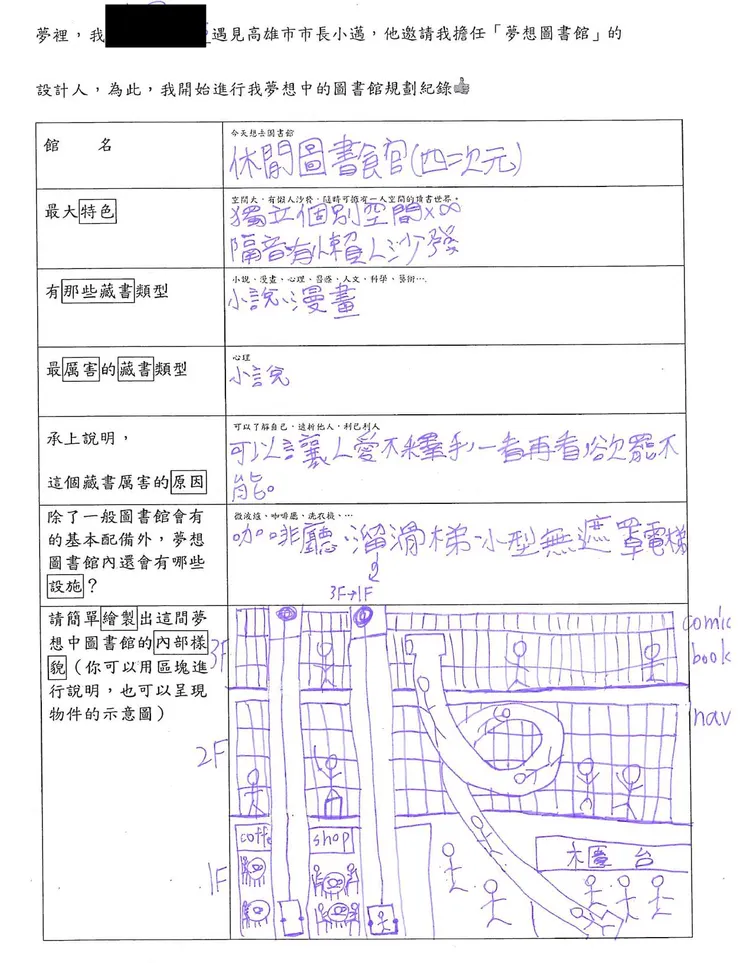 夢裡，我
遇見高雄市市長小邁，他邀請我擔任「夢想圖書館」的
設計人，為此，我開始進行我夢想中的圖書館規劃紀錄👍
館　　名
今天想去圖書館
休閒圖書館(四二次元)
最大特色
空間大，有懶人沙發，隨時可擁有一人空間的讀書世界。
獨立個別空間x∞
隔音有小懶人沙發
有那些藏書類型
小說、漫畫、心理、醫療、人文、科學、藝術….
小說、漫畫
最厲害的藏書類型
心理
小說
承上說明，
這個藏書厲害的原因
可以了解自己，透析他人，利己利人
可以讓人愛不釋手，一看再看，欲罷不
能。
除了一般圖書館會有
的基本配備外，夢想
圖書館內還會有哪些
設施？
微波爐、咖啡廳、洗衣機、…
咖啡廳、溜滑梯、小型無遮罩電梯
3F→1F
請簡單繪製出這間夢
想中圖書館的內部樣
貌（你可以用區塊進
行說明，也可以呈現
物件的示意圖）
3F
comic
book
2F
nav
1F
coffe
shop
櫃台